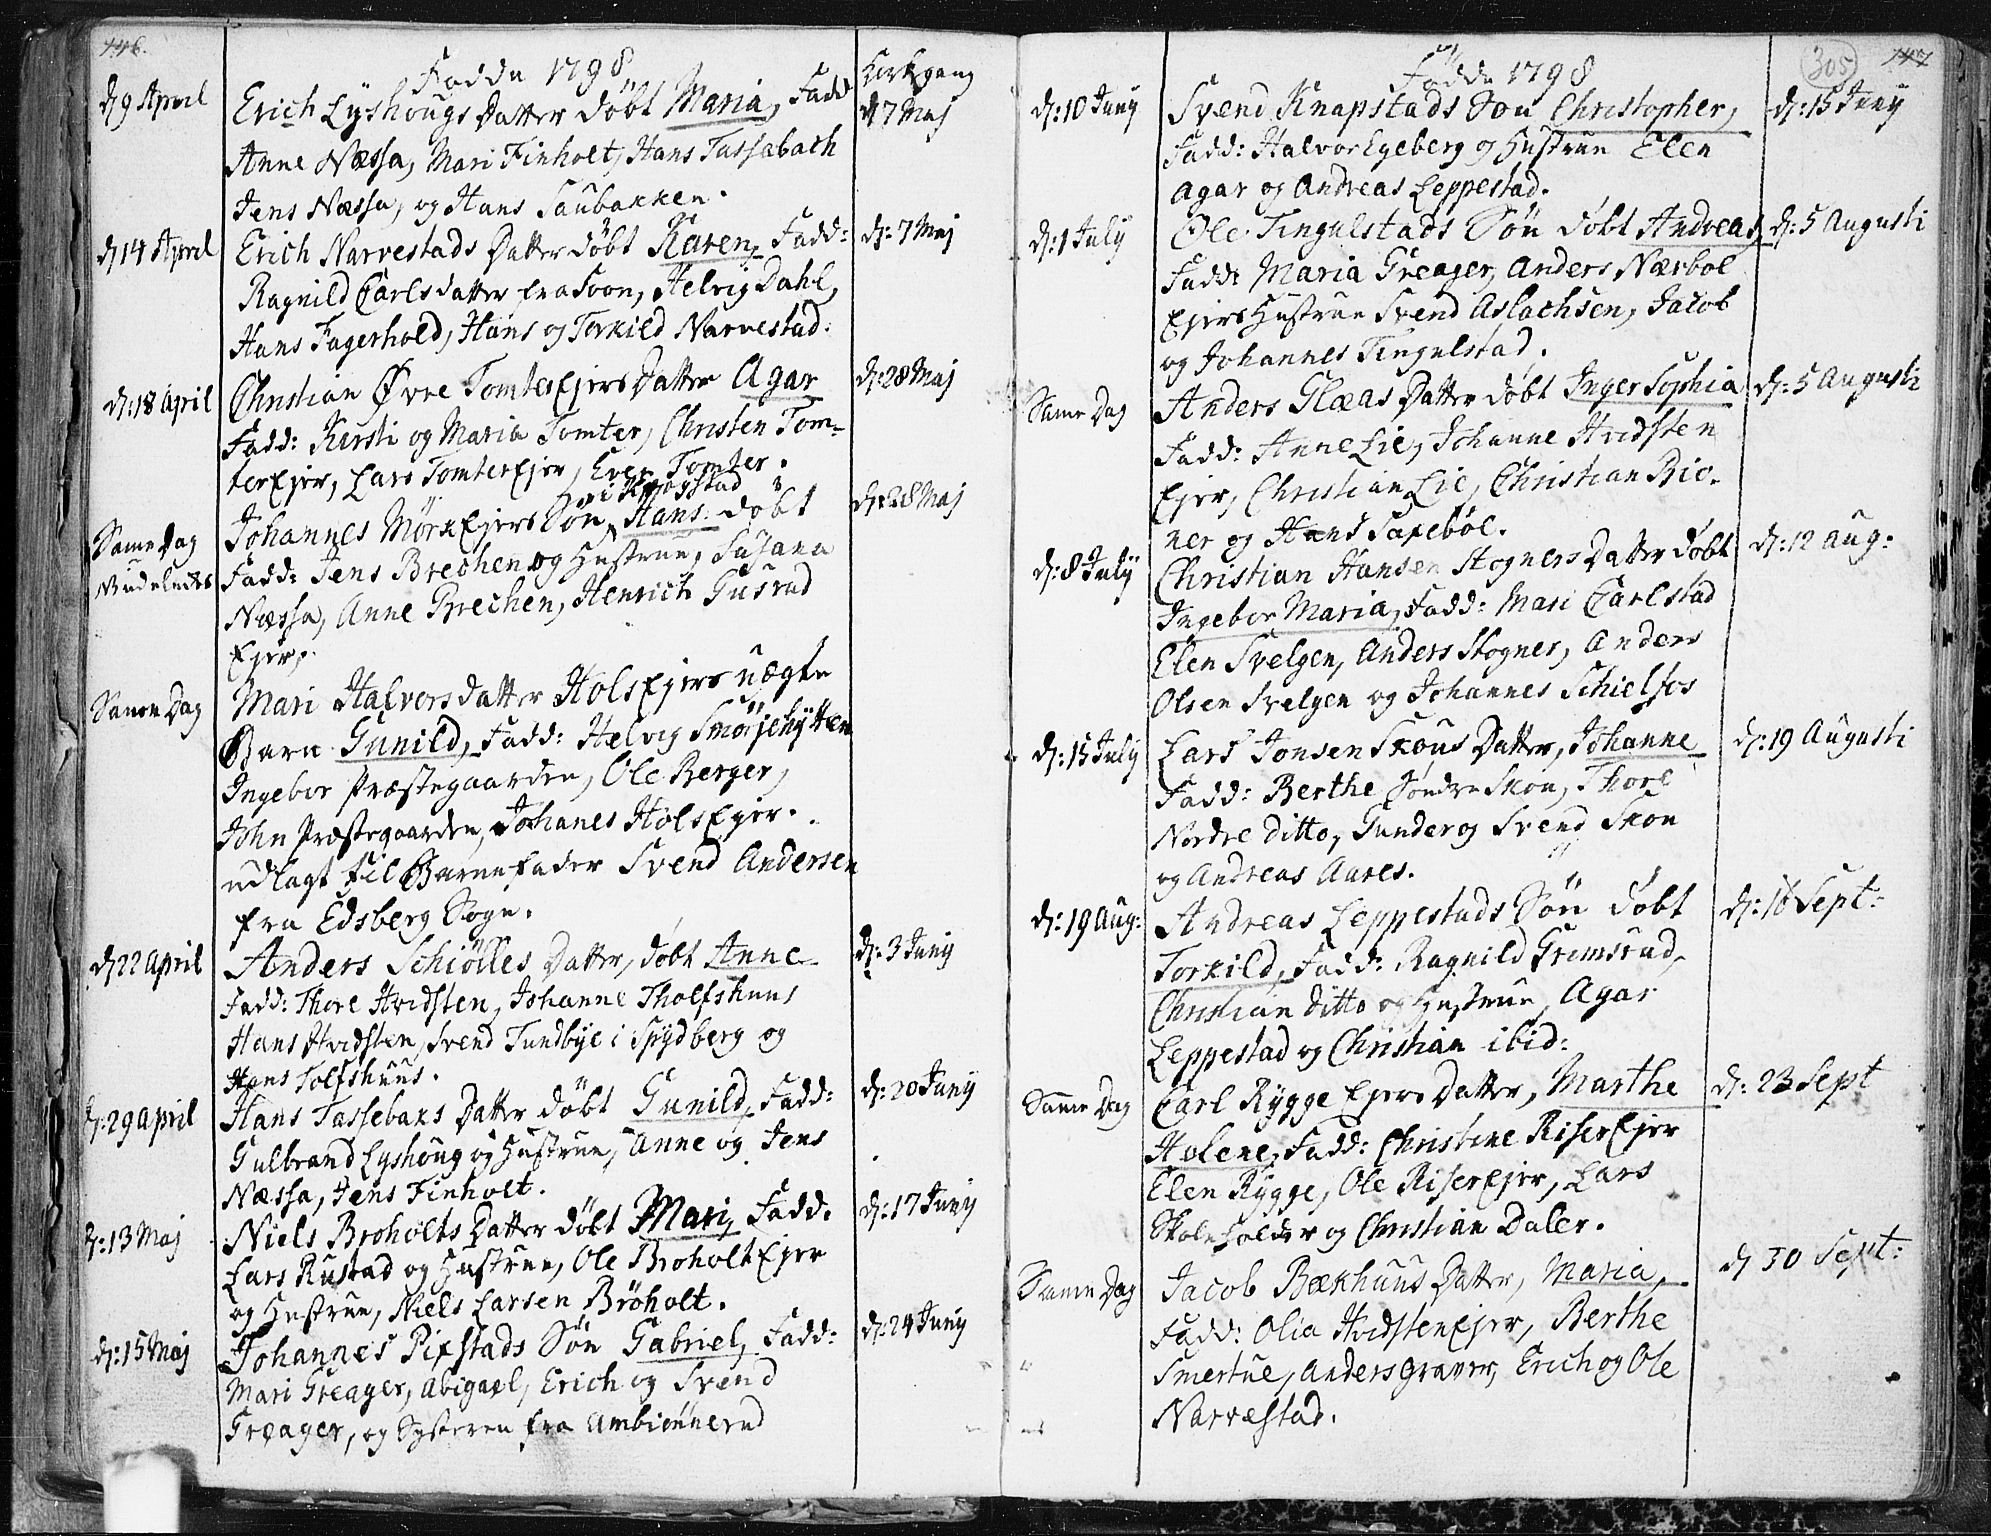 146.
Fødde 1798
Kirkgang
d 9 April
Erich Lyshougs Datter døbt Maria, Fadd
d 7 Maj
Anne Næssa, Mari Finholt, Hans Tassebach
Jens Næssa, og Hans Saubakken.
d 14 April
Erich Narvestads Datter døbt Karen, Fadd:
d: 7 Maj
Ragnild Carlsdatter fra Soon, Helvig Dahl,
Hans Fagerhold, Hans og Torkild Narvestad.
d: 18 April
Christian Øvre Tomter Ejers Datter Agar
d: 28 Maj
Fadd: Kirsti og Maria Tomter, Christen Tom-
ter Ejer, Lars Tomter Ejer, Even Tomter.
i Krogstad
Same Dag
Johannes Mørk Ejers Søn, Hans: døbt
d: 28 Maj
Fadd: Jens Brechen og Hustrue, Susana
Næssa, Anne Brechen, Henrich Gusrud
Ejer,
Samme Dag
Mari Halvorsdatter Hols Ejers uægte
Barn Gunild, Fadd: Helvig Smørjehytten
Ingebor Præstegaarden, Ole Berger,
John Præstegaarden, Johanes Hols Ejer.
udlagt til Barnefader Svend Andersen
fra Edsberg Sogn.
d 22 April
Anders Schiølles Datter, døbt Anne
d: 3 Juny
Fadd: Thore Hvidsten, Johanne Tholfshuus
Hans Hvidsten, Svend Tundbye i Spydberg og
Hans Tolfshuus.
d: 29 April
Hans Tassebaks Datter døbt Gunild, Fadd:
d: 20 Juny
Gulbrand Lyshoug og Hustrue, Anne og Jens
Næssa, Jens Finholt.
d: 13 Maj
Niels Broholts Datter døbt Mari, Fadd.
d: 17 Juny
Lars Rustad og Hustrue, Ole Broholt Ejer
og Hustrue, Niels Larsen Brøholt.
d: 15 Maj
Johannes Pixstads Søn Gabriel, Fadd:
d: 24 Juny
Mari Greager, Abigael, Erich og Svend
Greager, og Systeren fra Ambiønnerud
305
147
Fødde 1798
d: 10 Juny
Svend Knapstads Søn Christopher,
d: 15 Juny
Fadd: Halvor Egeberg og Hustrue Elen
Agar og Andreas Leppestad.
d: 1 July
Ole Tingulstads Søn døbt Andreas
d: 5 Augusti
Fadd: Maria Greager, Anders Nærbøl
Ejers Hustrue Svend Aslachsen, Jacob
og Johannes Tingulstad.
Same Dag
Anders Glæas Datter døbt Inger Sophia
d: 5 Augusti
Fadd: Anne Lie, Johanne Hvidsten
Ejer, Christian Lie, Christian Rie-
ner og Hans Saxebøl.
d: 8 July
Christian Hansen Stogners Datter døbt
d: 12 Aug:
Ingebor Maria, Fadd: Mari Carlstad
Elen Svelgen, Anders Stogner, Anders
Olsen Svelgen og Johannes Schielfos
d: 15 July
Lars Jonsen Skous Datter, Johanne
d: 19 Augusti
Fadd: Berthe Søndre Skou, Thore
Nordre Ditto, Gunder og Svend Skou
og Andreas Aares.
d: 19 Aug:
Andreas Leppestads Søn døbt
d: 16 Sept:
Torkild, Fadd: Ragnild Grimsrud,
Christian Ditto og Hustrue, Agar
Leppestad og Christian ibid:
Samme Dag
Carl Rygge Ejers Datter, Marthe
d: 23 Sept
Holene, Fadd: Christine Riser Ejer
Elen Rygge, Ole Riser Ejer, Lars
Skoleholder og Christian Daler.
Samme Dag
Jacob Bækhuus Datter, Maria,
d 30 Sept:
Fadd: Olia Hvidsten Ejer, Berthe
Smertue, Anders Graver, Erich og Ole
Narvestad.